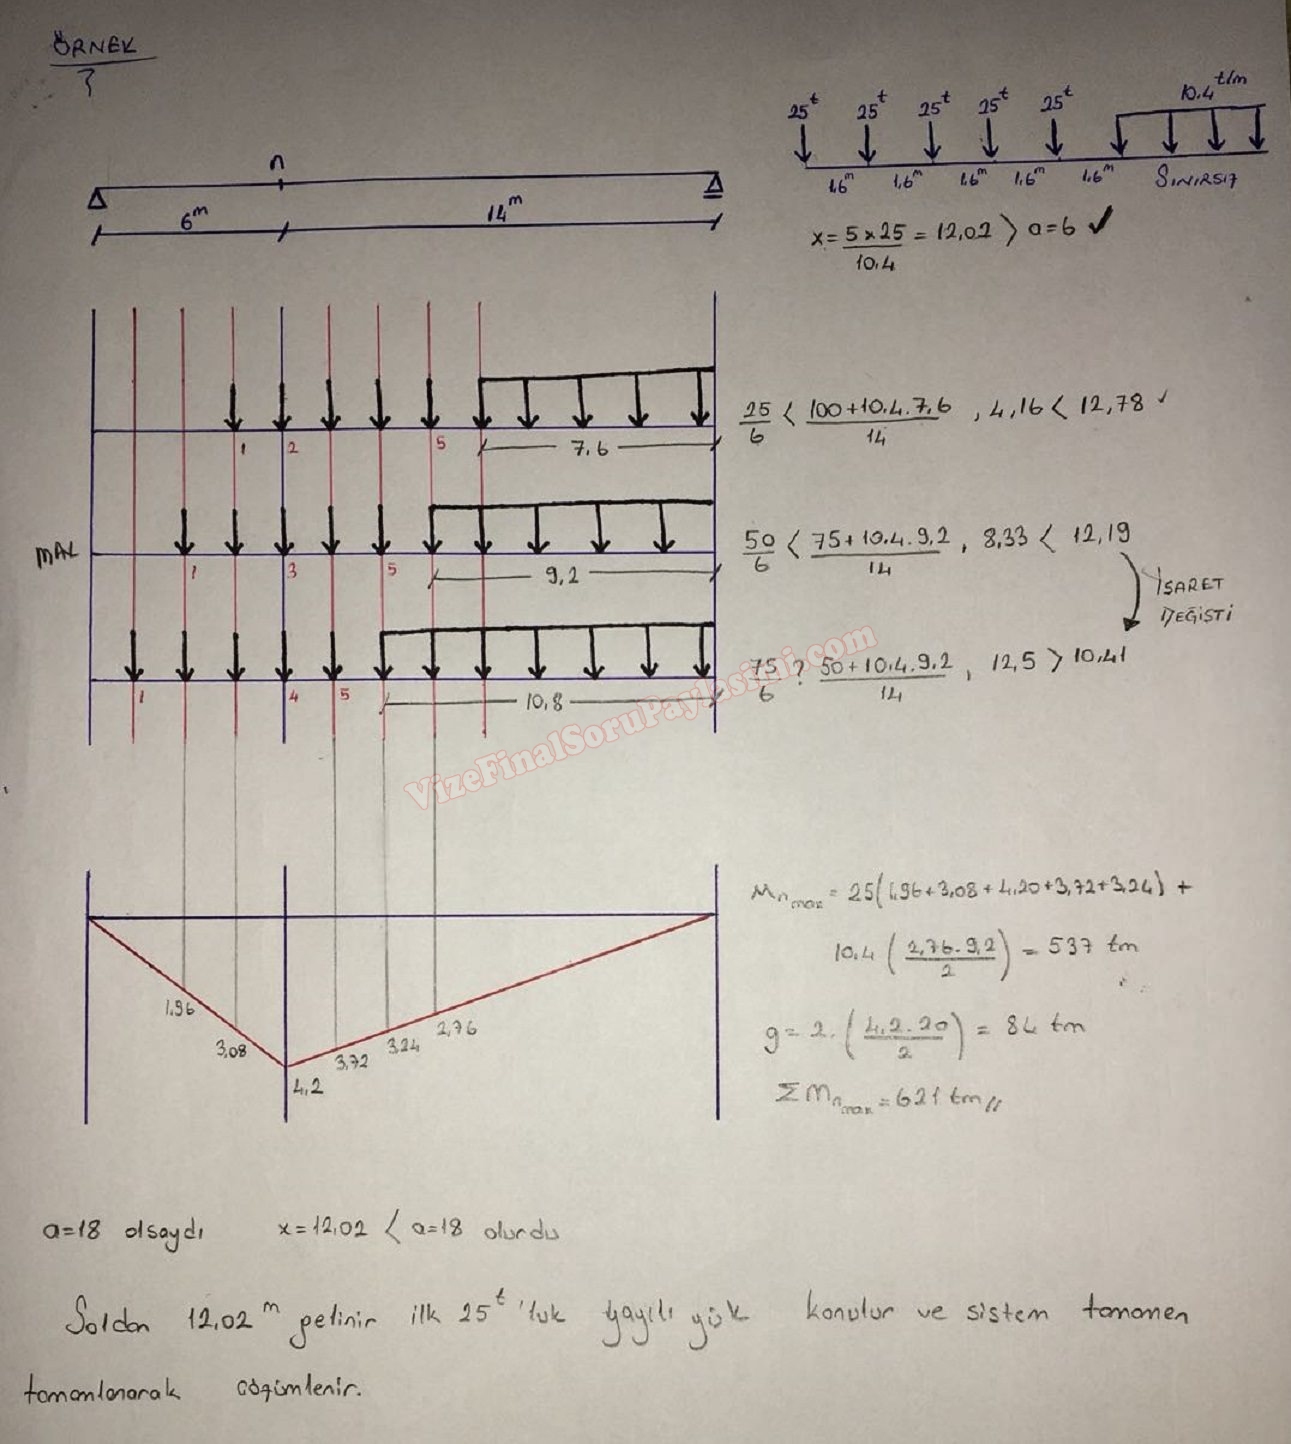 ÖRNEK
3
n
6m
14m
25t 25t 25t 25t 25t 10.4 t/m
1.6m 1.6m 1.6m 1.6m 1.6m SINIRSIZ
x = 5x25 / 10.4 = 12,02 > a=6 ✓
1 2 5 7,6
25/6 < 100+10.4.7,6 / 14 , 4,16 < 12,78 ✓
MAX
1 3 5 9,2
50/6 < 75+10.4.9.2 / 14 , 8,33 < 12,19
İŞARET
DEĞİŞTİ
1 4 5 10,8
75/6 ? 50+10.4.9.2 / 14 , 12,5 > 10,41
VizeFinalSoruPaylasimi.com
1,96
3,08
4,2
3,72
3,24
2,76
Mn max = 25(1,96+3,08+4,20+3,72+3,24) +
10.4 (2,76.9,2 / 2) = 537 tm
g = 2.(4,2.20 / 2) = 84 tm
ΣMn max = 621 tm //
a=18 olsaydı x=12,02 < a=18 olurdu
Soldan 12,02m gelinir ilk 25t 'luk yayılı yük konulur ve sistem tamamen
tamamlanarak çözümlenir.